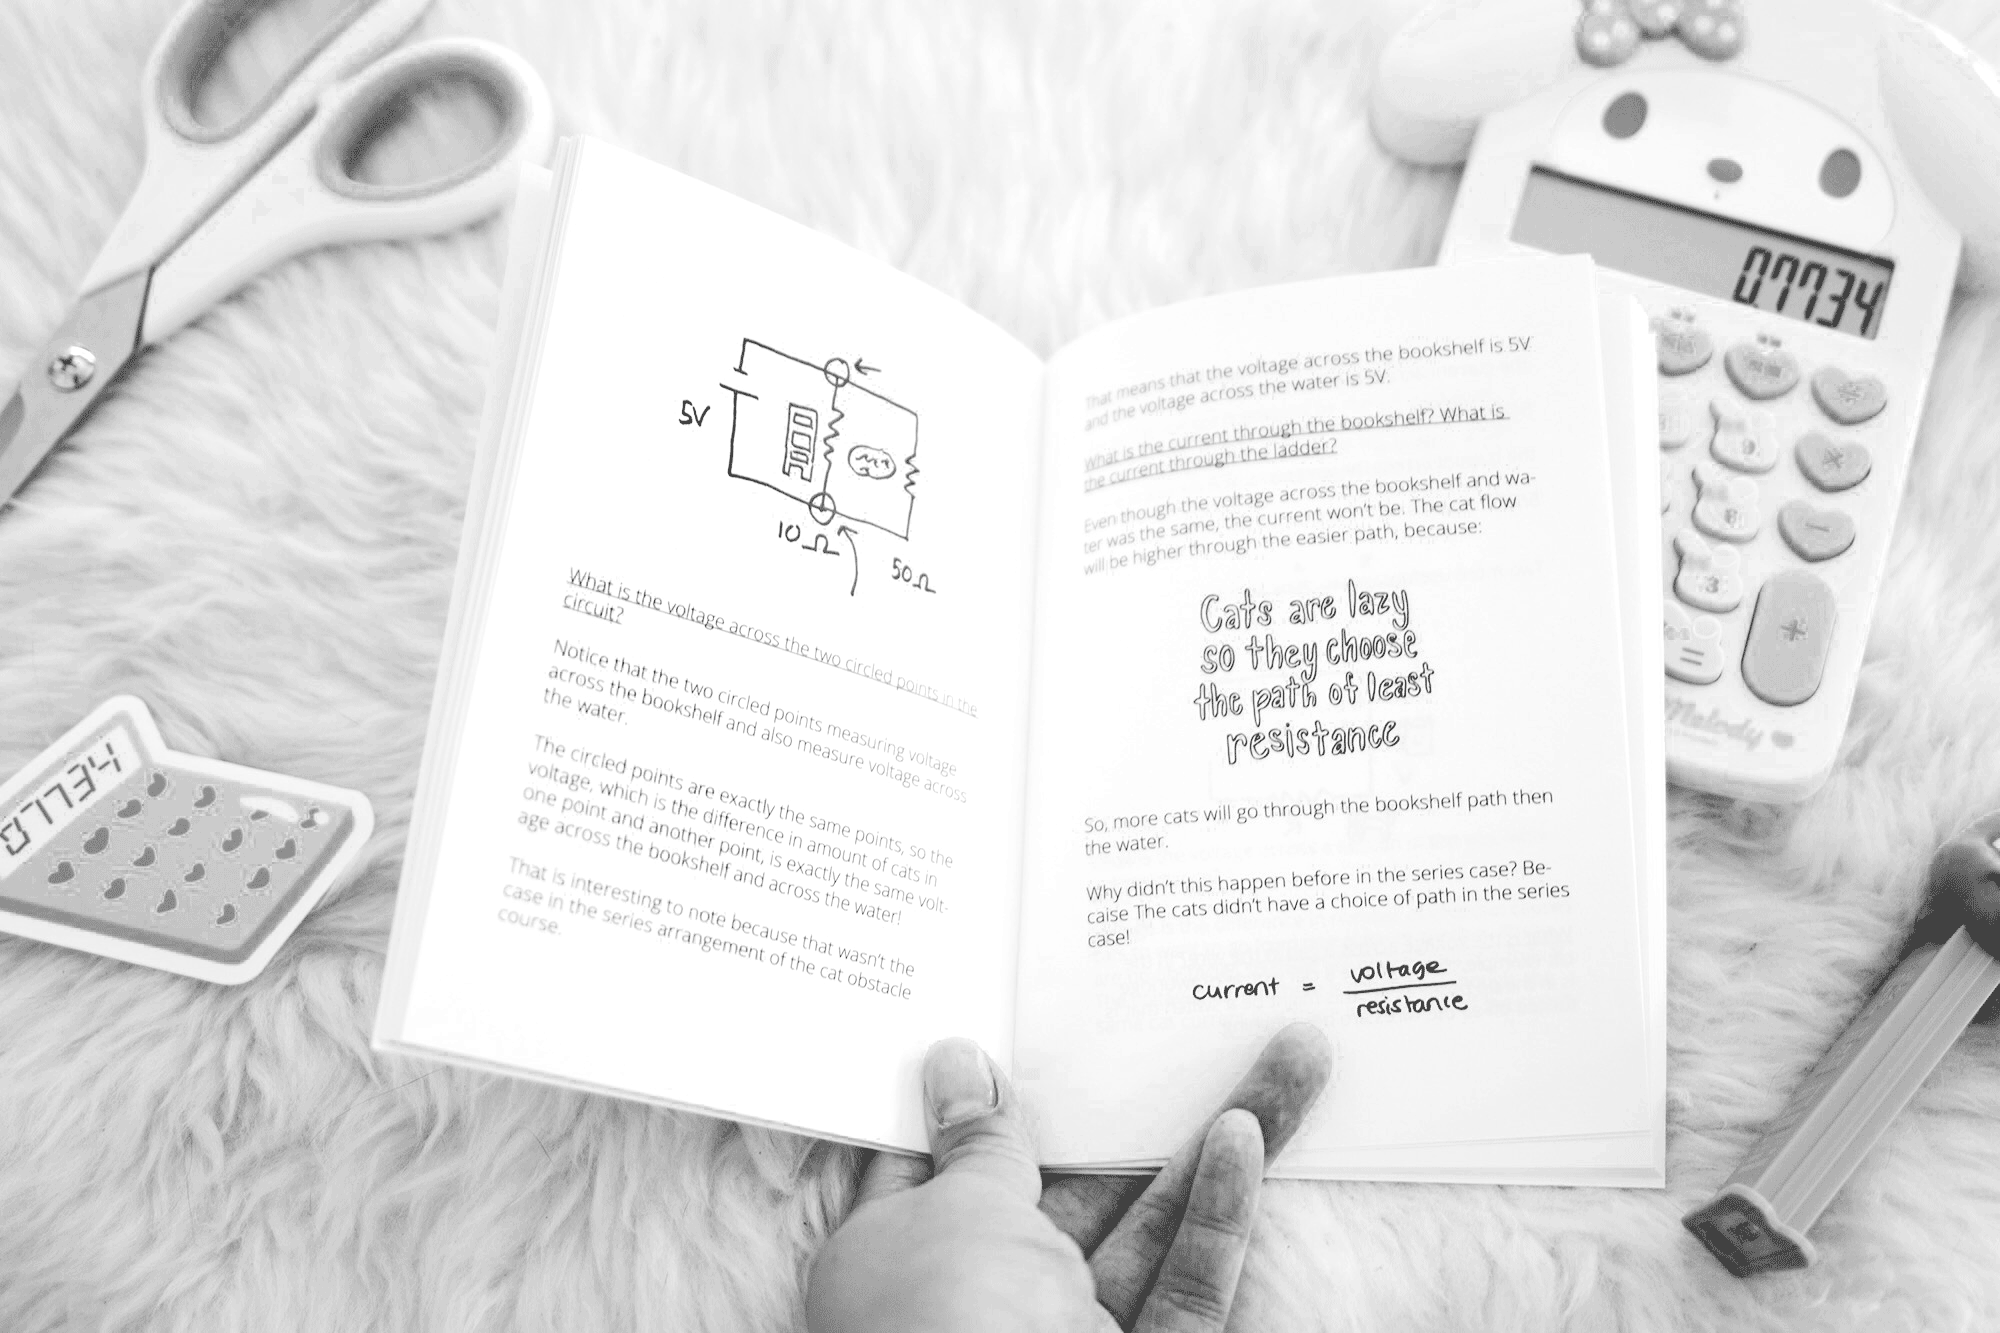 5V
10Ω
50Ω
What is the voltage across the two circled points in the
circuit?
Notice that the two circled points measuring voltage
across the bookshelf and also measure voltage across
the water.
The circled points are exactly the same points, so the
voltage, which is the difference in amount of cats in
one point and another point, is exactly the same volt-
age across the bookshelf and across the water!
That is interesting to note because that wasn't the
case in the series arrangement of the cat obstacle
course.
That means that the voltage across the bookshelf is 5V
and the voltage across the water is 5V.
What is the current through the bookshelf? What is
the current through the ladder?
Even though the voltage across the bookshelf and wa-
ter was the same, the current won't be. The cat flow
will be higher through the easier path, because:
Cats are lazy
so they choose
the path of least
resistance
So, more cats will go through the bookshelf path then
the water.
Why didn't this happen before in the series case? Be-
caise The cats didn't have a choice of path in the series
case!
current = voltage
resistance
07734
9
×
6
−
3
=
+
Melody
07734